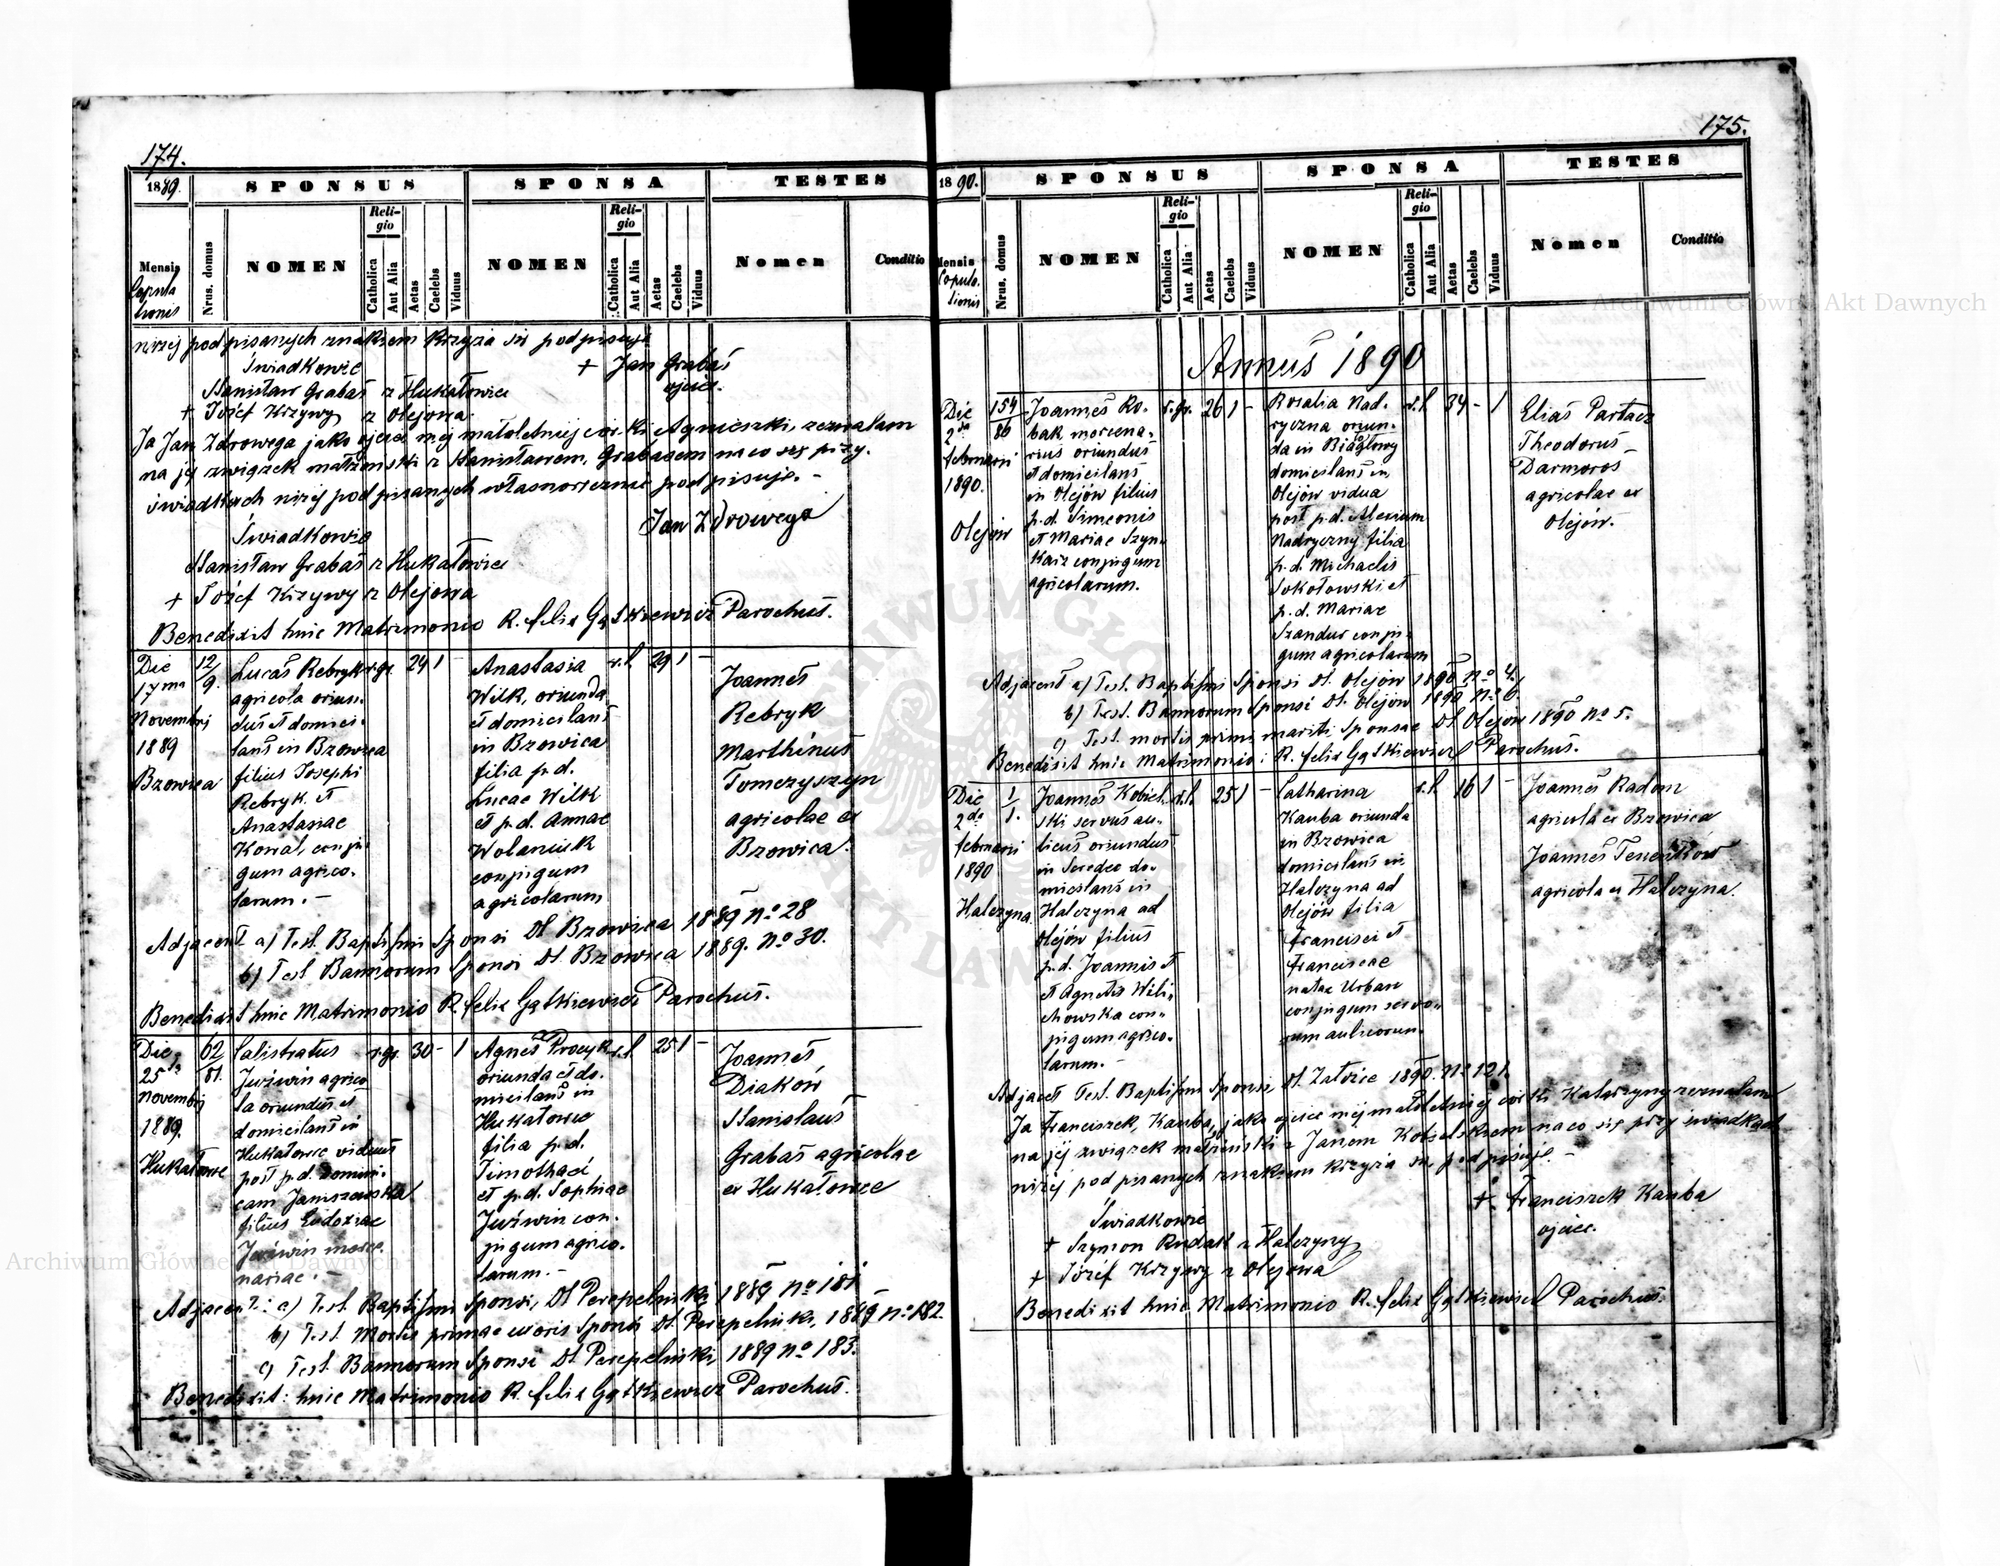 174.
1889.
SPONSUS
SPONSA
TESTES
Mensis
Copula
tionis
Nrus. domus
NOMEN
Reli-
gio
Catholica
Aut Alia
Aetas
Caelebs
Viduus
NOMEN
Reli-
gio
Catholica
Aut Alia
Aetas
Caelebs
Viduus
Nomen
Conditio
niżej podpisanych znakiem krzyża się podpisuje
Świadkowie + Jan Grabas
ojciec.
Stanisław Grabas z Hukałowiec
+ Józef Krzywy z Olejowa
Ja Jan Zdrowega jako ojciec mej małoletniej córki Agnieszki, zezwalam
na jej związek małżeński z Stanisławem Grabasem na co się przy
świadkach niżej podpisanych własnoręcznie podpisuję. -
Świadkowie
Jan Zdrowega
Stanisław Grabas z Hukałowiec
+ Józef Krzywy z Olejowa
Benedixit huic Matrimonio R. Felix Gątkiewicz Parochus.
Die
17ma
Novembrj
1889
Brzowica
12/9.
Lucas Rebryk
agricola oriun-
dus et domici-
lans in Bzowica
filius Josephi
Rebryk et
Anastasiae
Kowal, conju-
gum agrico-
larum. -
r.gr. 24 1 -
Anastasia
Wilk, oriunda
et domicilans
in Bzowica
filia p.d.
Lucae Wilk
et p.d. Annae
Wolaniuk
conjugum
agricolarum
r.l. 29 1 -
Joannes
Rebryk
Marthinus
Tomczyszyn
agricolae ex
Bzowica.
Adjacent a) Test. Baptismi Sponsi dt Bzowica 1889 No 28
b) Test Bannorum Sponsi dt. Bzowica 1889. No 30.
Benedixit huic Matrimonio R. Felix Gątkiewicz Parochus.
Die
25ta
Novembrj
1889.
Hukałowce
62
81.
Calistratus
Juźwin agrico
la oriundus et
domicilans in
Hukałowce viduus
post p.d. Domini-
cam Janiszewska
filius Eudoxiae
Juźwin merce-
nariae. -
r.gr. 30 - 1
Agnes Procyk
oriunda et do-
micilans in
Hukałowce
filia p.d.
Timothaei
et p.d. Sophiae
Juźwin con-
jugum agrico-
larum. -
r.l. 25 1 -
Joannes
Diaków
Stanislaus
Grabas agricolae
ex Hukałowce
Adjacent: a) Test. Baptismi Sponsi, dt Perepelniki 1889 No 181
b) Test. Mortis primae uxoris Sponsi dt Perepelniki, 1889 No 182.
c) Test. Bannorum Sponsi dt Perepelniki 1889 No 183.
Benedixit: huic Matrimonio R. Felix Gątkiewicz Parochus.
175.
1890.
SPONSUS
SPONSA
TESTES
Mensis
Copula-
tionis
Nrus. domus
NOMEN
Reli-
gio
Catholica
Aut Alia
Aetas
Caelebs
Viduus
NOMEN
Reli-
gio
Catholica
Aut Alia
Aetas
Caelebs
Viduus
Nomen
Conditio
Annus 1890
Die
2da
Februarii
1890.
Olejów
154
86
Joannes Ro-
bak mercena-
rius oriundus
et domicilans
in Olejów filius
p.d. Simeonis
et Mariae Szyn-
karz conjugum
agricolarum.
r.gr. 26 1 -
Rosalia Nad-
ryczna oriun-
da in Białogłowy
domicilans in
Olejów vidua
post p.d. Alexium
Nadryczny filia
p.d. Michaelis
Sokołowski et
p.d. Mariae
Szandur conju-
gum agricolarum
r.l. 34 - 1
Elias Partacz
Theodorus
Darmoros
agricolae ex
Olejów. -
Adjacent a) Test. Baptismi Sponsi dt. Olejów 1890 No 4.
b) Test. Bannorum Sponsi dt. Olejów 1890 No 6.
c) Test. mortis primi mariti Sponsae dt Olejów 1890 No 5.
Benedixit huic Matrimonio: R. Felix Gątkiewicz Parochus.
Die
2da
Februarii
1890
Hałczyna
1/1.
Joannes Kobiel-
ski servus au-
licus oriundus
in Seredec do-
micilans in
Hałczyna ad
Olejów filius
p.d. Joannis et
et Agnetis Wili-
chowska con-
jugum agrico-
larum. -
r.l. 25 1 -
Catharina
Kauba oriunda
in Bzowica
domicilans in
Hałczyna ad
Olejów filia
Francisci et
Franciscae
natae Urban
conjugum servo-
rum aulicorum.
r.l. 16 1 -
Joannes Radom
agricola ex Bzowica
Joannes Tenenków
agricola ex Hałczyna.
Adjacet Test. Baptismi Sponsi, dt Załoźce 1890. No 121.
Ja Franciszek Kauba, jako ojciec mej małoletniej córki Katarzyny zezwalam
na jej związek małżeński z Janem Kobielskiem na co się przy świadkach
niżej podpisanych znakiem krzyża się podpisuję. -
+ Franciszek Kauba
ojciec.
Świadkowie
+ Szymon Rudak z Hałczyny
+ Józef Krzywy z Olejowa
Benedixit huic Matrimonio R. Felix Gątkiewicz Parochus.
Archiwum Główne Akt Dawnych
Archiwum Główne Akt Dawnych
ARCHIWUM GŁÓWNE AKT DAWNYCH